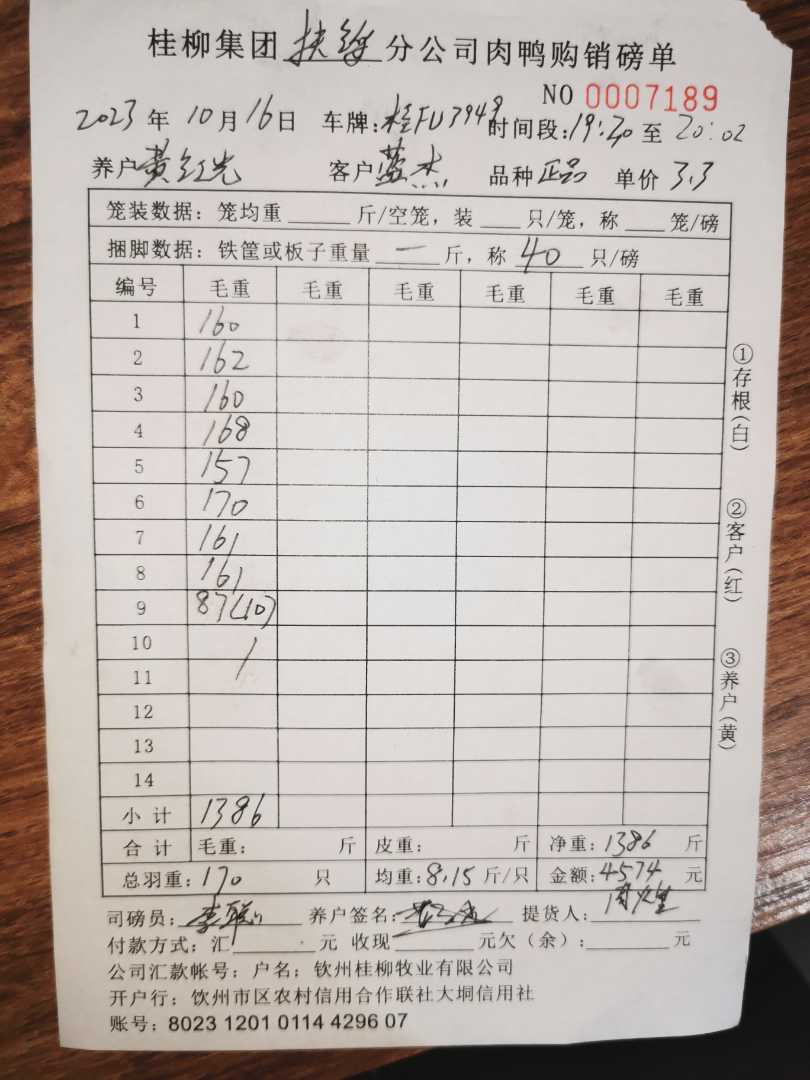 桂柳集团扶绥分公司肉鸭购销磅单
NO 0007189
2023年10月16日 车牌:桂FU3948 时间段:19:20至20:02
养户黄红光 客户蓝杰 品种正品 单价3.3
笼装数据:笼均重____斤/空笼,装___只/笼,称___笼/磅
捆脚数据:铁筐或板子重量一斤,称40只/磅
编号 毛重 毛重 毛重 毛重 毛重 毛重
1 160
2 162
3 160
4 168
5 157
6 170
7 161
8 161
9 87(10)
10 /
11
12
13
14
小计 1386
合计 毛重: 斤 皮重: 斤 净重:1386斤
总羽重:170只 均重:8.15斤/只 金额:4574元
司磅员: 养户签名: 提货人:
付款方式:汇____元 收现____元欠(余):____元
公司汇款帐号:户名;钦州桂柳牧业有限公司
开户行:饮州市区农村信用合作联社大垌信用社
账号:8023 1201 0114 4296 07
①存根(白)
②客户(红)
③养户(黄)